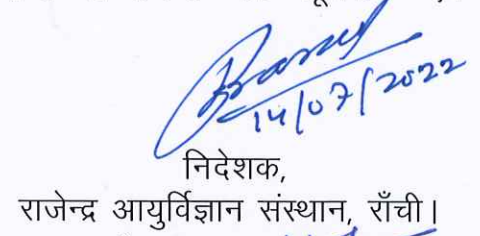 14/07/2022
निदेशक,
राजेन्द्र आयुर्विज्ञान संस्थान, राँची।